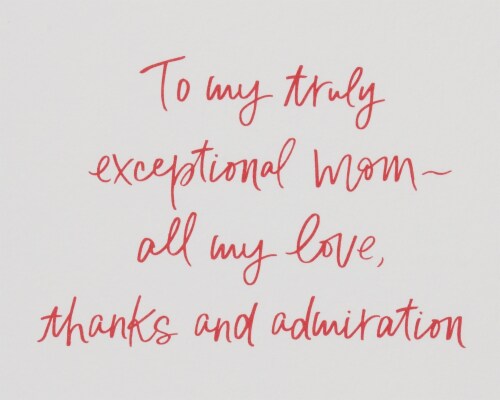 To my truly
exceptional mom~
all my love,
thanks and admiration